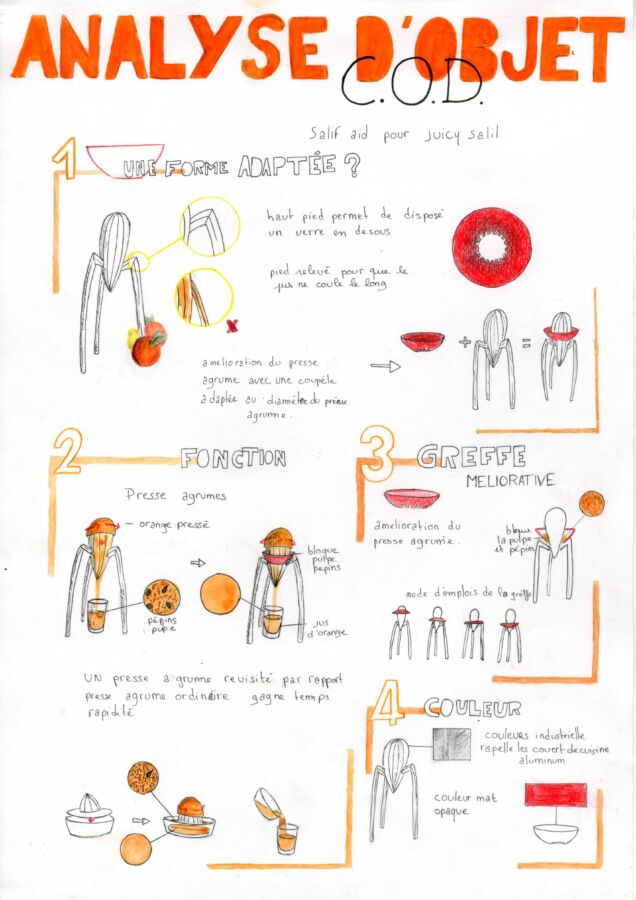 ANALYSE D'OBJET
C.O.D.
Salif aid pour Juicy Salil
1 UNE FORME ADAPTÉE ?
haut pied permet de disposé
un verre en desous
pied relevé pour que le
jus ne coule le long
x
amelioration du presse
agrume avec une coupéle
adaptée au diamétre du presse
agrume.
+ =
2 FONCTION
Presse agrumes
orange pressé
bloque
pulpe
pepins
pépins
pulpe
jus
d'orange
UN presse agrume revisité par rapport
presse agrume ordinaire gagne temps
rapidité.
3 GREFFE
MELIORATIVE
amelioration du
presse agrume.
bloque
la pulpe
et pépins
mode d'emplois de la greffe
4 COULEUR
couleurs industrielle
rapelle les couert de cuisine
aluminum
couleur mat
opaque